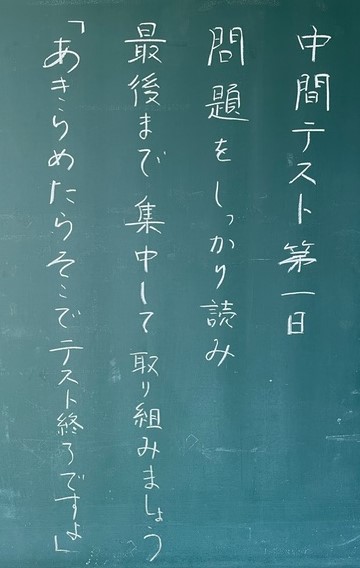 中間テスト第一日
問題をしっかり読み
最後まで集中して取り組みましょう
「あきらめたらそこでテスト終了ですよ」